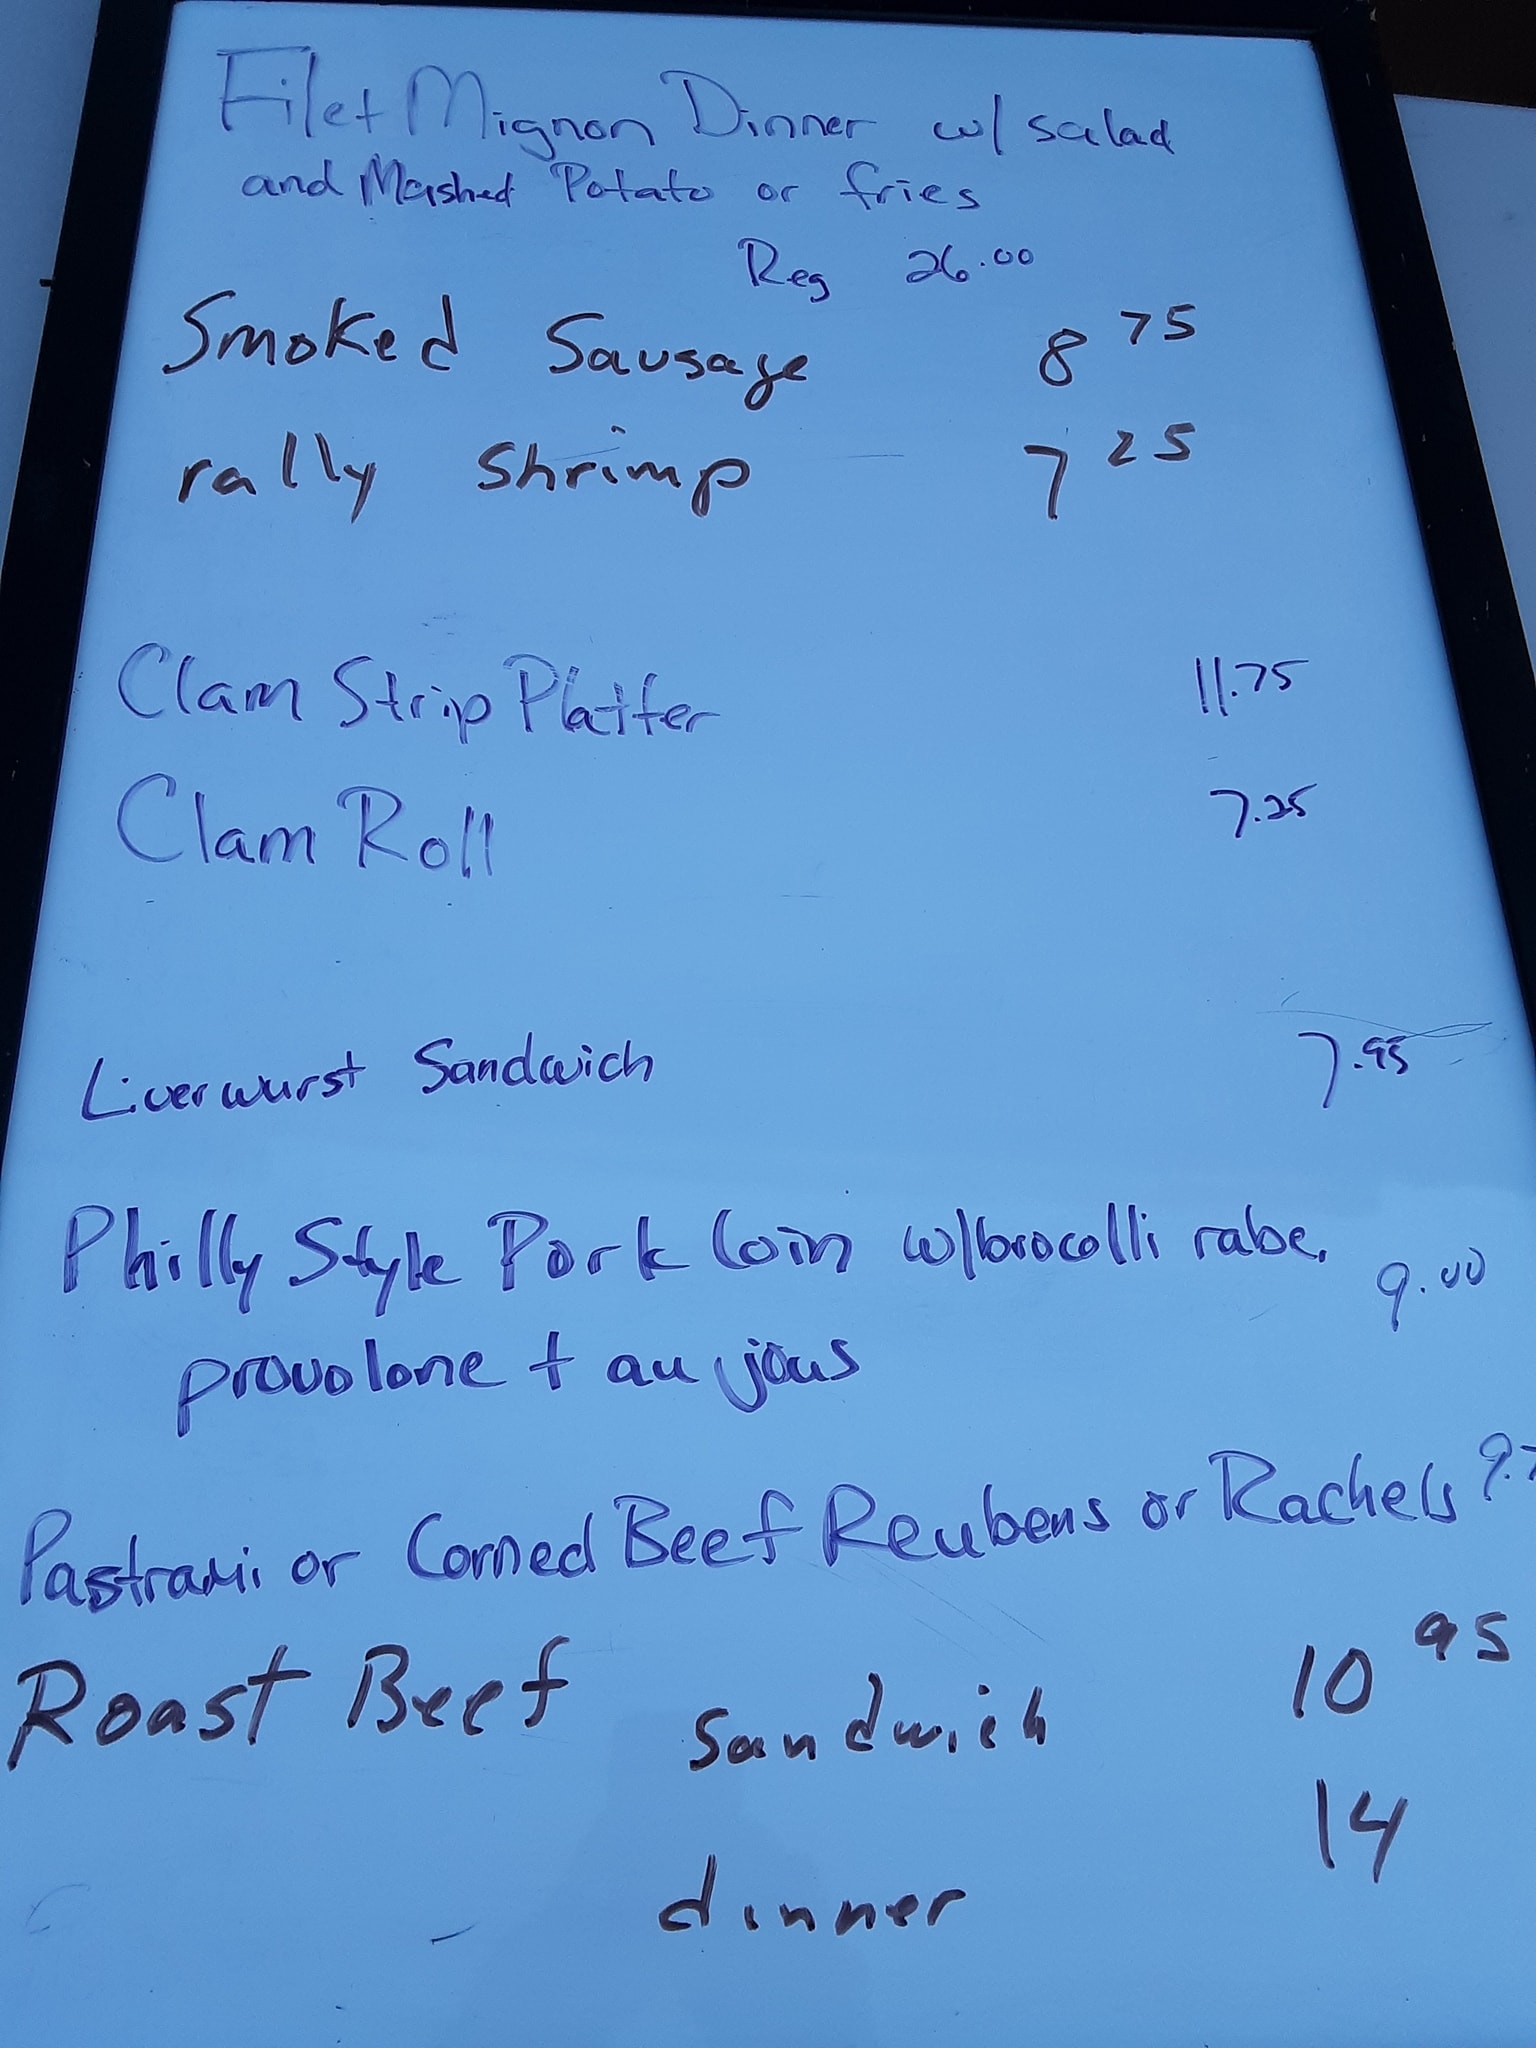 Filet Mignon Dinner w/ salad
and Mashed Potato or fries
Reg 26.00
Smoked Sausage 8 75
rally shrimp 7 25
Clam Strip Platter 11.75
Clam Roll 7.25
Liverwurst Sandwich 7.95
Philly Style Pork loin w/brocolli rabe, 9.00
provolone + au jous
Pastrami or Corned Beef Reubens or Rachels 9.7
Roast Beef sandwich 10 95
dinner 14